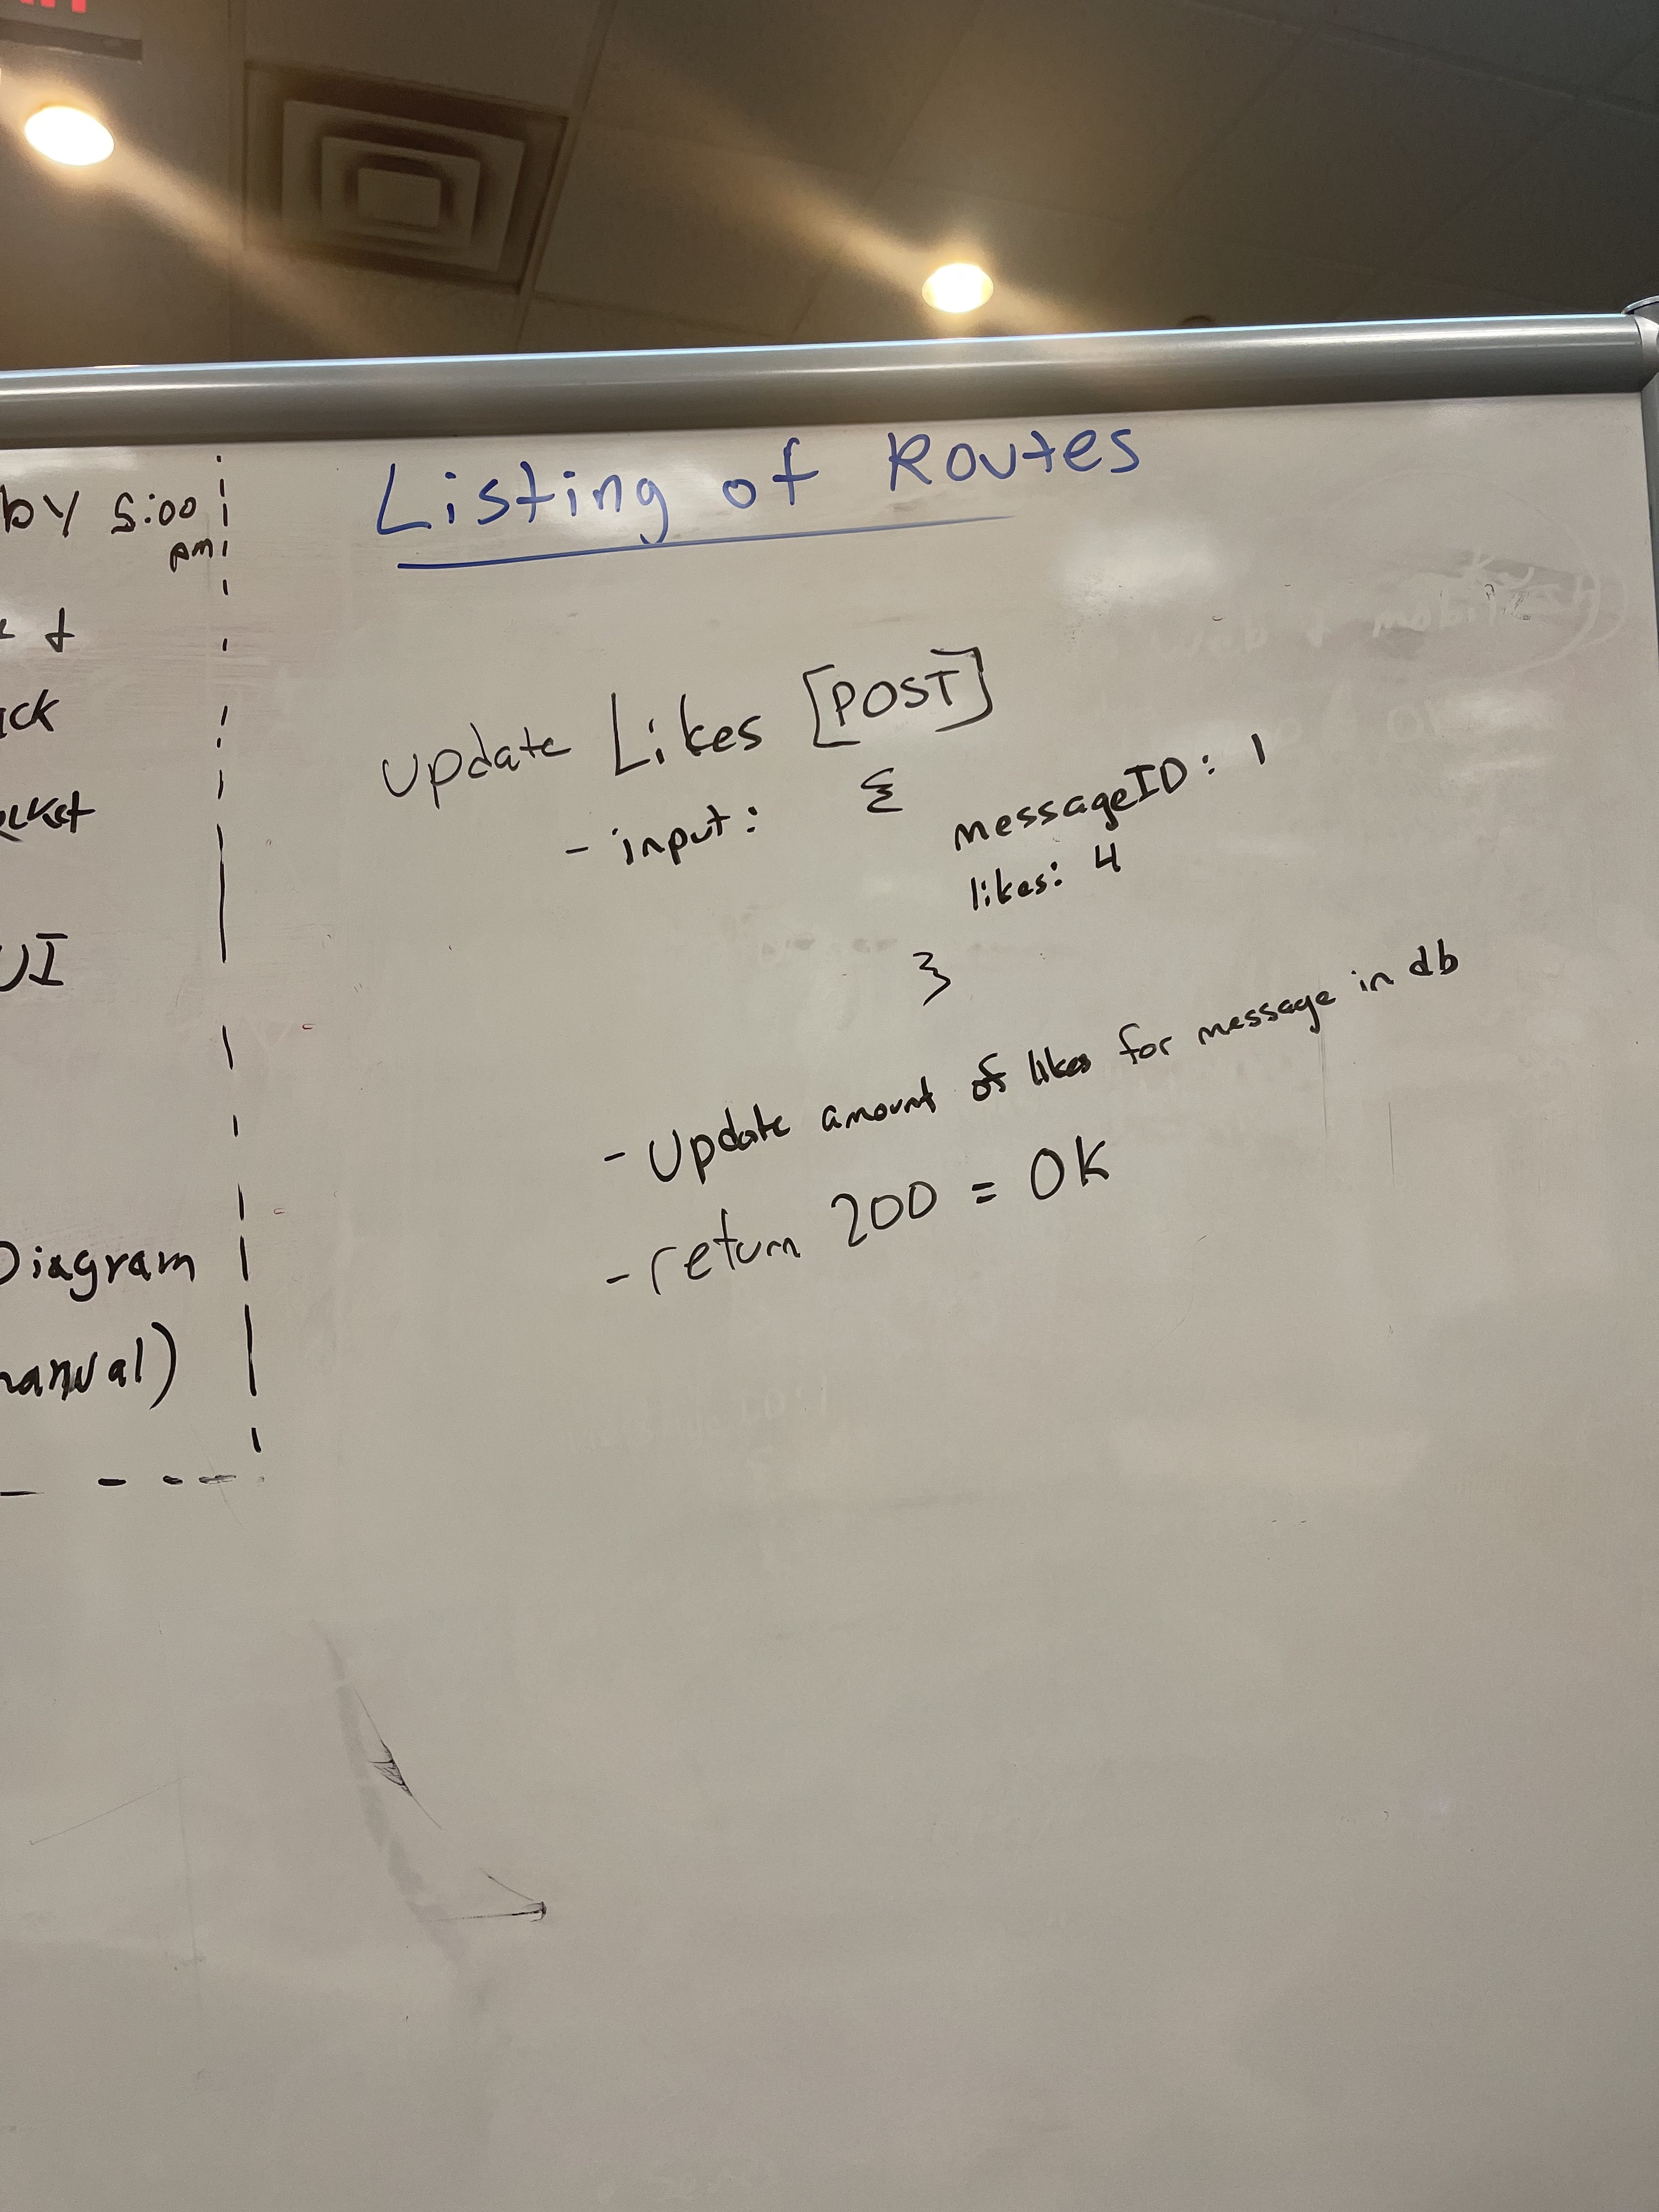 by 5:00
pm
UI
Diagram
Listing of Routes
Update Likes [POST]
- input: {
messageID: 1
likes: 4
}
- Update amount of likes for message in db
- return 200 = OK
web & mobile